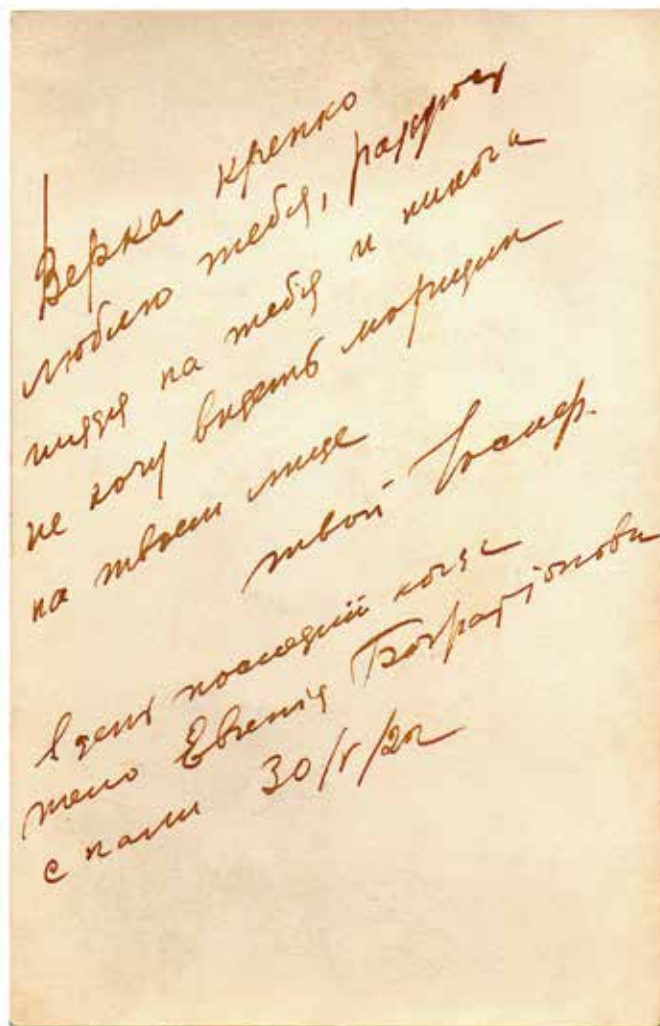 Верка крепко
люблю тебя, радуюсь
глядя на тебя и никогда
не хочу видеть морщин
на твоем лице
твой
В день последний когда
тело Евгения
с нами 30/V/22